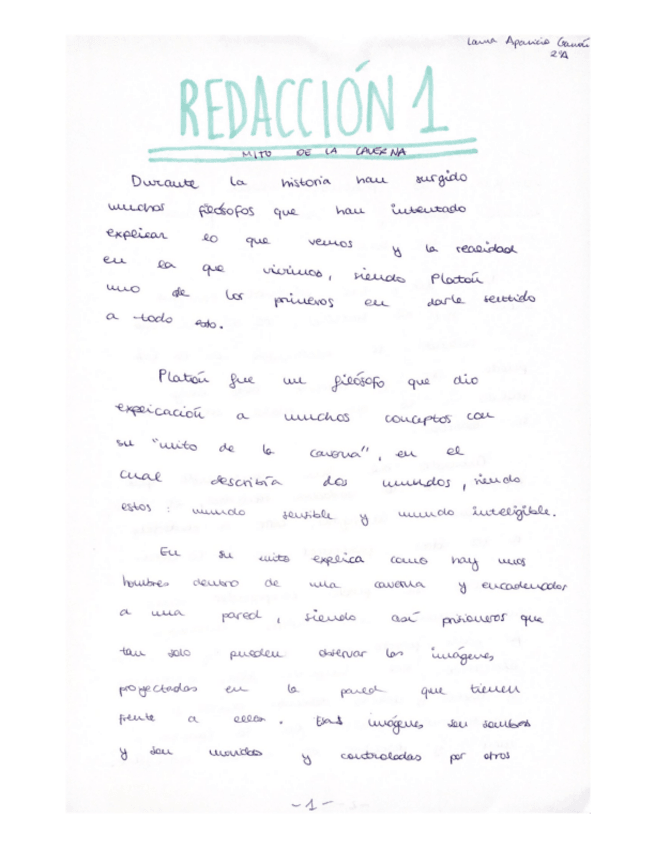 Laura Aparicio
2ºA
REDACCIÓN 1
MITO DE LA CAVERNA
Durante la historia han surgido
muchos filósofos que han intentado
explicar lo que vemos y la realidad
en la que vivimos, siendo Platón
uno de los primeros en darle sentido
a todo esto.
Platón fue un filósofo que dio
explicación a muchos conceptos con
su "mito de la caverna", en el
cual describía dos mundos, siendo
estos: mundo sensible y mundo inteligible.
En su mito explica como hay unos
hombres dentro de una caverna y encadenados
a una pared, siendo así prisioneros que
tan solo pueden observar las imágenes
proyectadas en la pared que tienen
frente a ellos. Esas imágenes son sombras
y son movidas y controladas por otros
-1-